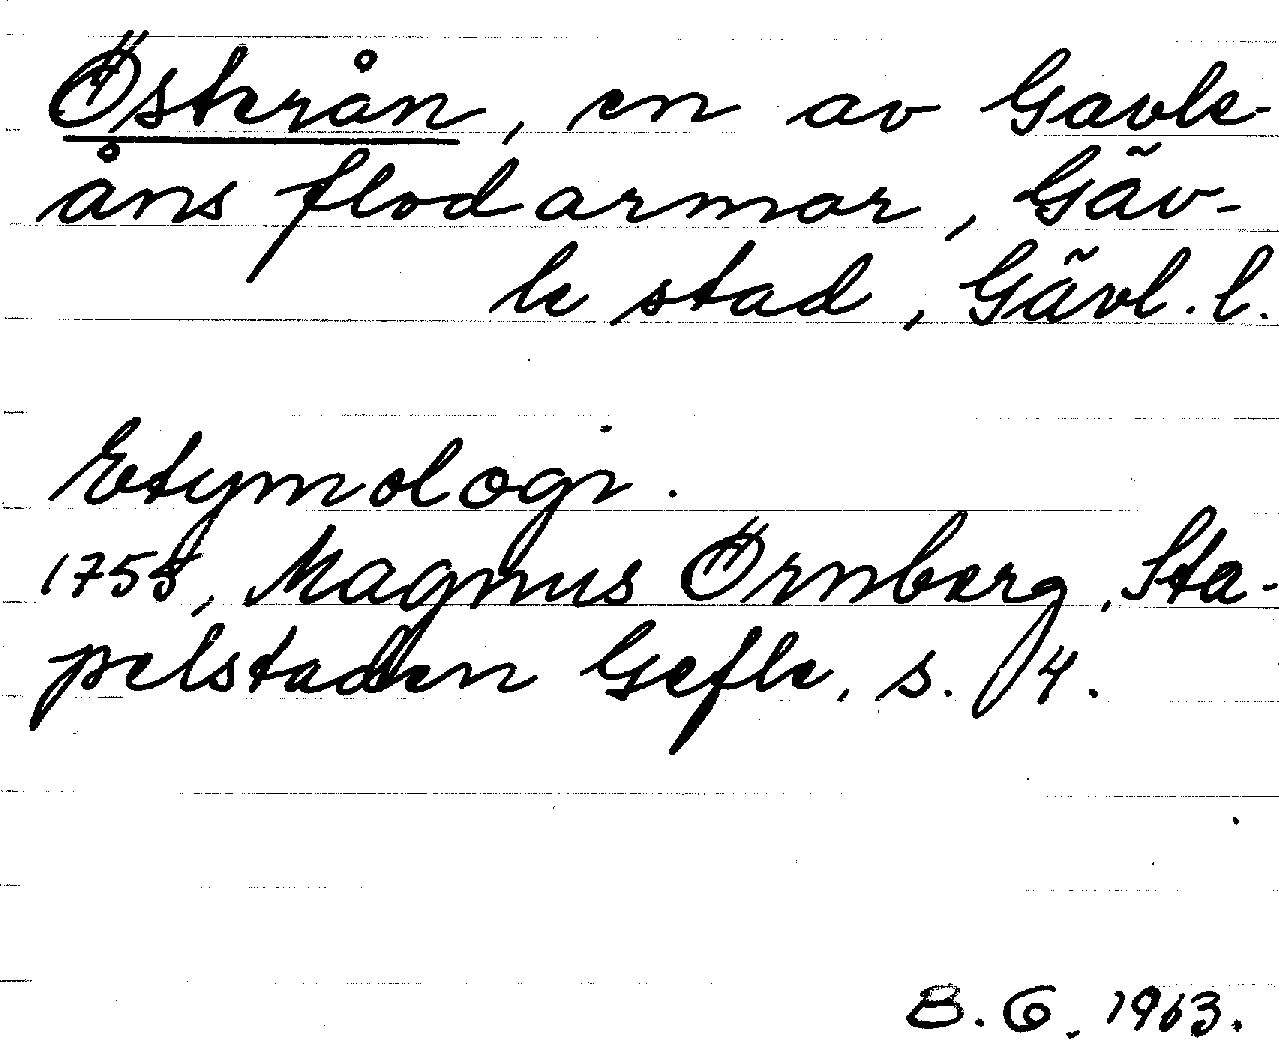 Österån, en av Gavle-
åns flodarmar, Gäv-
le stad, Gävl. l.
Etymologi.
1755, Magnus Örnberg, Sta-
pelstaden Gefle, s. 4.
B. G. 1963.